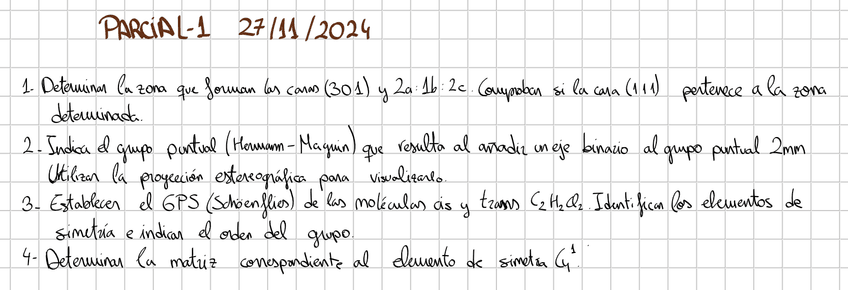 PARCIAL-1 27/11/2024
1. Determinar la zona que forman las caras (301) y 2a:1b:2c. Comprobar si la cara (111) pertenece a la zona
determinada.
2.- Indica el grupo puntual (Hermann-Maguin) que resulta al añadir un eje binario al grupo puntual 2mm
Utilizar la proyección estereográfica para visualizarlo.
3- Establecer el GPS (Schoenflies) de las moléculas cis y trans C₂H₂Cl₂. Identificar los elementos de
simetría e indicar el orden del grupo.
4- Determinar la matriz correspondiente al elemento de simetría C₄¹.